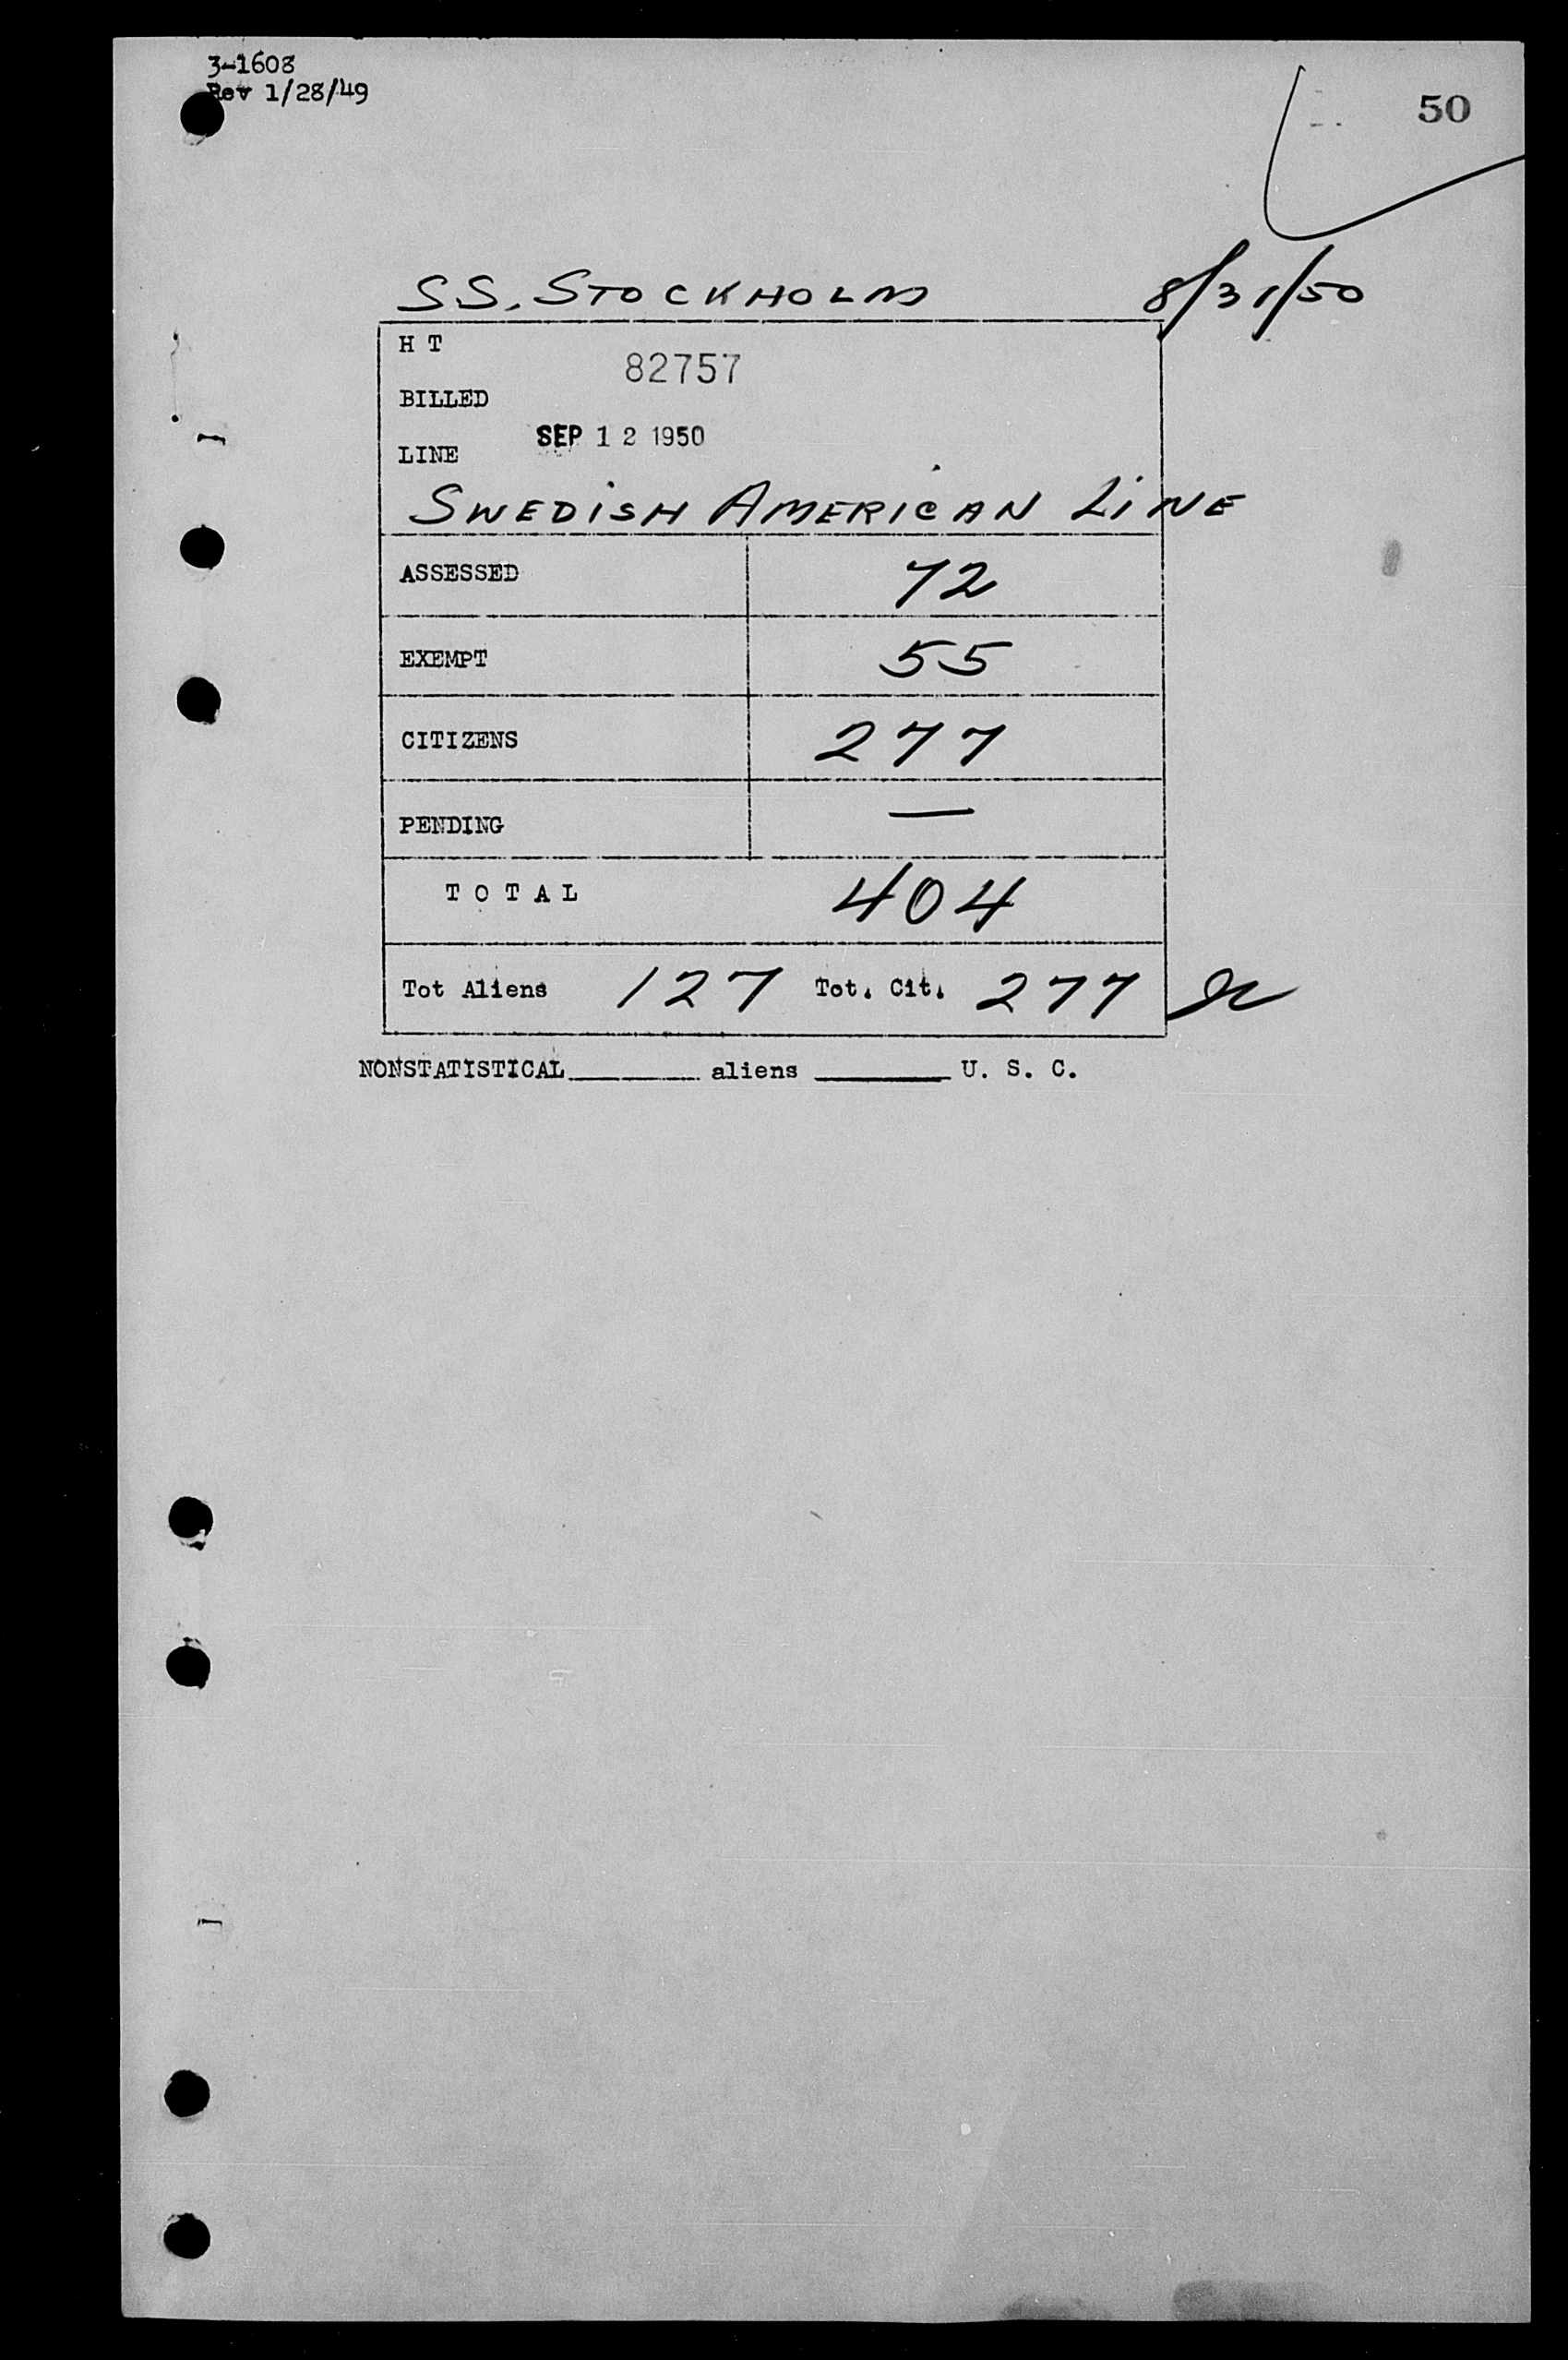 3-1608
Rev 1/28/49
50
SS. STOCKHOLM 8/31/50
H T
82757
BILLED
SEP 12 1950
LINE
SWEDISH AMERICAN LINE
ASSESSED 72
EXEMPT 55
CITIZENS 277
PENDING —
T O T A L 404
Tot Aliens 127 Tot. Cit. 277
NONSTATISTICAL________ aliens ________ U. S. C.